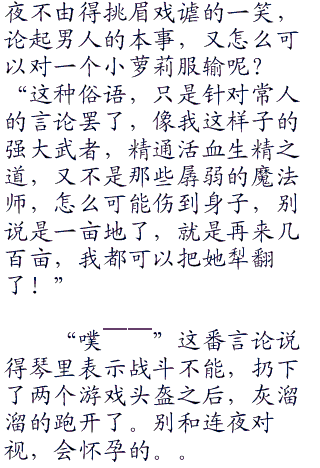 夜不由得挑眉戏谑的一笑，
论起男人的本事，又怎么可
以对一个小萝莉服输呢？
“这种俗语，只是针对常人
的言论罢了，像我这样子的
强大武者，精通活血生精之
道，又不是那些孱弱的魔法
师，怎么可能伤到身子，别
说是一亩地了，就是再来几
百亩，我都可以把她犁翻
了！”
“噗——”这番言论说
得琴里表示战斗不能，扔下
了两个游戏头盔之后，灰溜
溜的跑开了。别和连夜对
视，会怀孕的。。